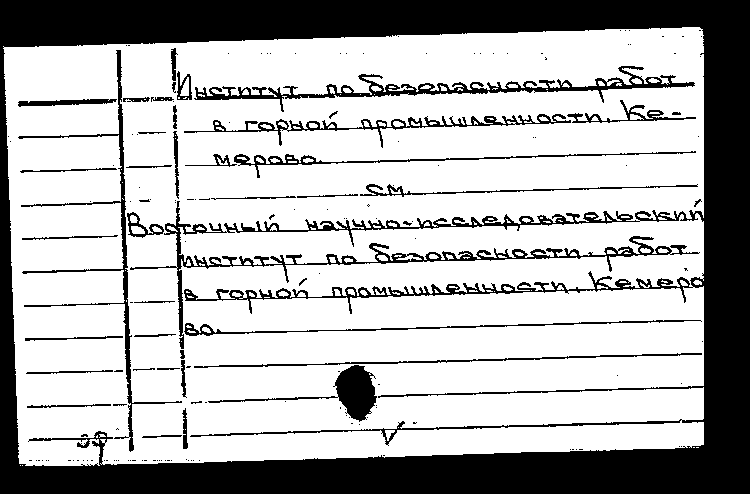 Институт по безопасности работ
в горной промышленности. Ке-
мерово.
см.
Восточный научно-исследовательский
институт по безопасности работ
в горной промышленности. Кемеро
во.